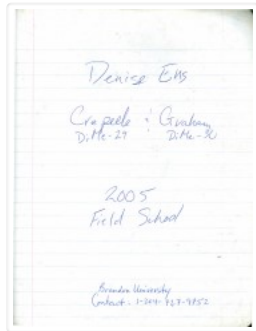 Denise Ens
Crepeele : Graham
DiMe-29 DiMe-30
2005
Field School
Brandon University
Contact: 1-204-